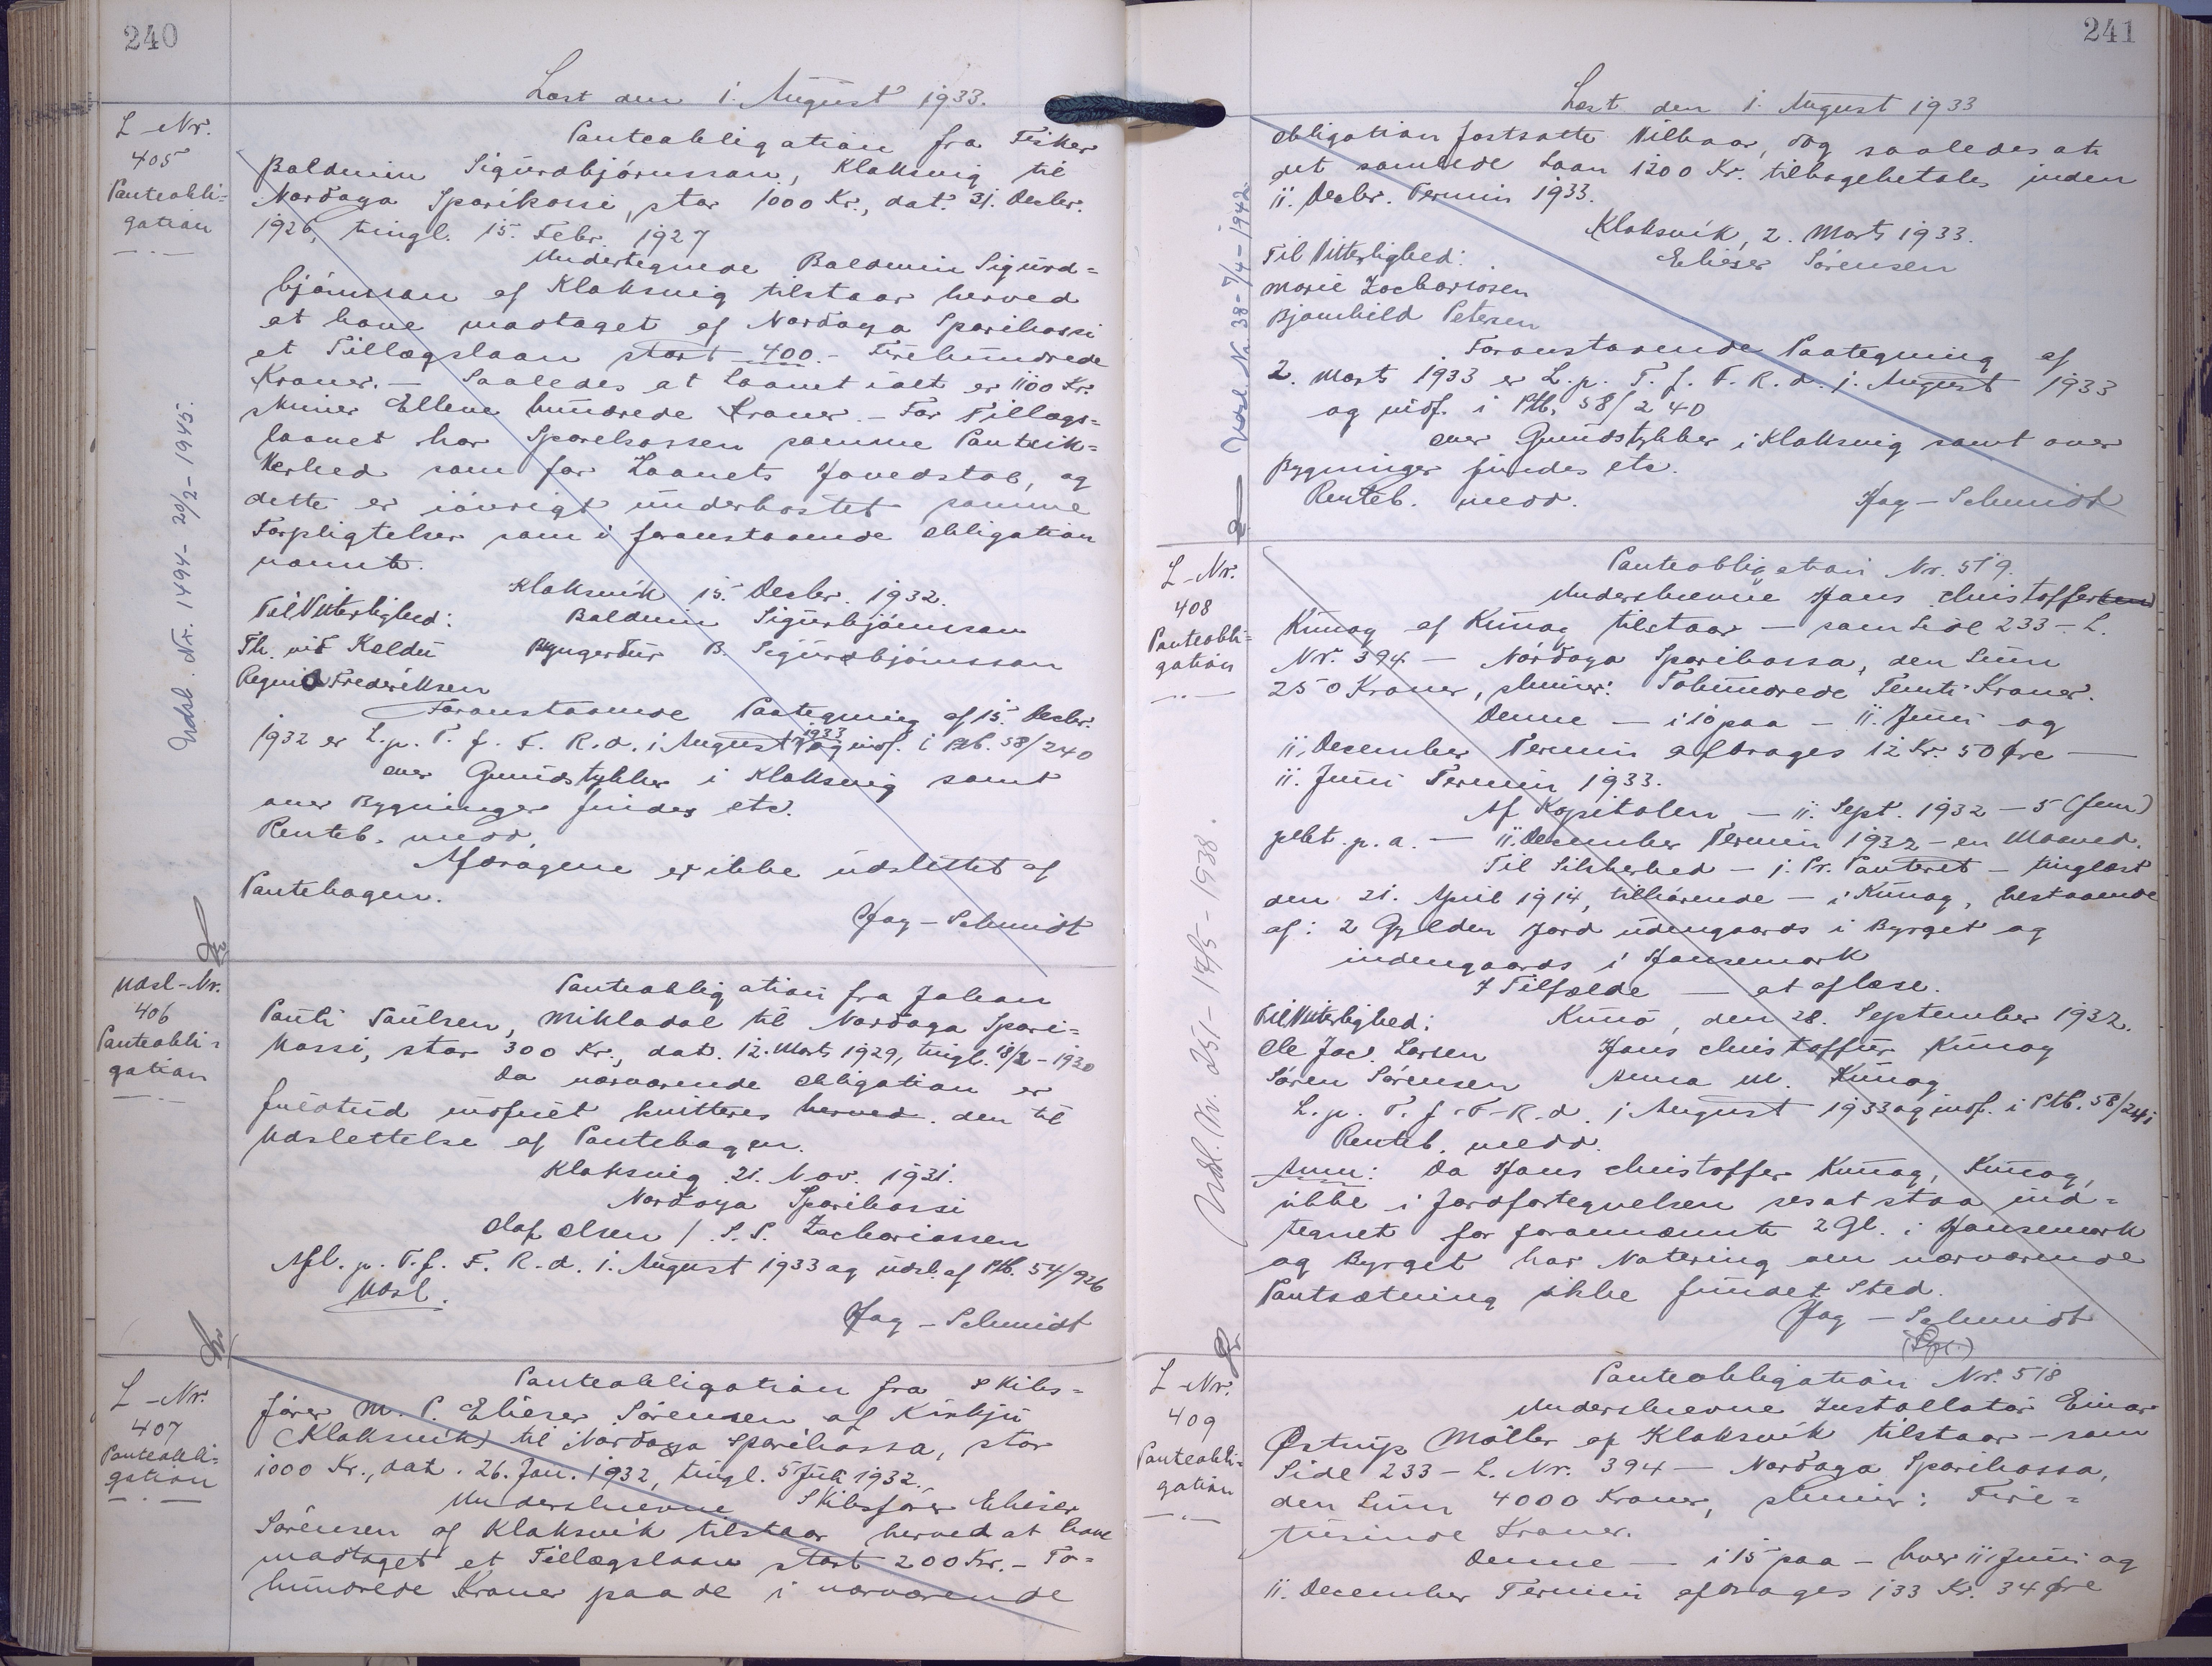 240
Læst den 1. August 1933.
L-Nr.
405
Panteobli-
gation
Panteobligation fra Fisker
Balduin Sigurdbjörnsson, Klaksvig til
Nordoya Sparikassi, stor 1000 Kr., dat. 31. Decbr.
1926, tingl. 15. Febr. 1927
Undertegnede Balduin Sigurd=
björnsson af Klaksvig tilstaar herved
at have modtaget af Nordoya Sparikassi
et Tillægslaan stort 400.- Firehundrede
Kroner. - Saaledes at Laanet ialt er 1100 Kr.
skriver Elleve hundrede Kroner. - For Tillægs=
laanet har Sparekassen samme Pantsik=
kerhed som for Laanets Hovedstol, og
dette er iøvrigt underkastet samme
Forpligtelser som i foranstaaende Obligation
nævnt.
Klaksvik 15. Decbr. 1932.
Til Vitterlighed: Balduin Sigurbjörnsson
Th. við Keldu Ryngerður B. Sigurdbjörnsson
Regnid Frederiksen
Foranstaaende Paategning af 15. Decbr.
1932 er L. p. T. f. F. R. d. 1 August 1933 og indf. i Ptb. 58/240
over Grundstykker i Klaksvig samt
over Bygninger findes etc.
Renteb. medd.
Afdragene er ikke udslettet af
Pantebogen.
Hag - Schmidt
Udsl. Nr. 1494 - 20/2 - 1945.
Udsl-Nr.
406
Panteobli=
gation
Panteobligation fra Johan
Pauli Paulsen, Mikladal til Nordoya Spari=
kassi, stor 300 Kr., dat. 12. Marts 1929, tingl. 18/2 - 1930
Da nærværende Obligation er
fuldtud indfriet kvitteres herved den til
Udslettelse af Pantebogen.
Klaksvig 21. Nov. 1931.
Nordoya Sparikassi
Olaf Olsen / S. S. Zachariassen
Afl. p. T. f. F. R. d. 1. August 1933 og udsl. af Ptb. 54/926
Udsl.
Hag - Schmidt
L-Nr.
407
Panteobli=
gation
Panteobligation fra Skibs=
fører M. P. Elieser Sörensen af Kirkju
(Klaksvik) til Nordoya Sparikassa, stor
1000 Kr., dat. 26. Jan. 1932, tingl. 5 Juli 1932.
Underskrevne Skibsfører Elieser
Sörensen af Klaksvik tilstaar herved at have
modtaget et Tillægslaan stort 200 Kr. - To=
hundrede Kroner paa de i nærværende
241
Læst den 1. August 1933
Obligation fastsatte Vilkaar, dog saaledes at
det samlede Laan 1200 Kr. tilbagebetales inden
11. Decbr. Termin 1933.
Klaksvik, 2. Marts 1933.
Til Vitterlighed: Elieser Sörensen
Marie Zachariasen
Bjamhild Petersen
Foranstaaende Paategning af
2. Marts 1933 er L. p. T. f. F. R. d. 1. August 1933
og indf. i Ptb. 58/240
over Grundstykker i Klaksvig samt over
Bygninger findes etc.
Renteb. medd. Hag - Schmidt
Udsl. Nr. 38 - 7/4 - 1942.
L-Nr.
408
Panteobli-
gation
Panteobligation Nr. 519.
Underskrevne Hans Christoffersen
Kunoy af Kunoy tilstaar - som Side 233 - L.
Nr. 394 - Nordoya Sparikassa, den Sum
250 Kroner, skriver: Tohundrede Femti Kroner.
Denne - i 10 paa - 11. Juni og
11. December Termin afdrages 12 Kr. 50 Øre -
11. Juni Termin 1933.
Af Kapitalen - 11. Sept. 1932 - 5 (fem)
pCt. p. a. - 11. December Termin 1932 - en Maaned.
Til Sikkerhed - 1. Pr. Panteret - tinglæst
den 21. April 1914, tilhørende - i Kunoy, bestaaende
af: 2 Gylden Jord udengaards i Byrget og
indengaards i Hansemark
I Tilfælde - at aflæse.
Til Vitterlighed: Kunö, den 28. September 1932.
Ole Jac. Larsen Hans Christoffur Kunoy
Sören Sörensen Anna M. Kunoy
L. p. T. f. F. R. d. 1 August 1933 og indf. i Ptb. 58/241
Renteb. medd.
Anm: Da Hans Christoffer Kunoy, Kunoy,
ikke i Jordfortegnelsen ses at staa ind=
tegnet for forannævnte 2 Gl. i Hansemark
og Byrget har Notering om nærværende
Pantsætning ikke fundet Sted.
Hag - Schmidt
Udsl. Nr. 251 - 14/5 - 1938.
L-Nr.
409
Panteobli-
gation
Panteobligation Nr. 518
Underskrevne Installatør Einar
Østrup Möller af Klaksvik tilstaar - som
Side 233 - L. Nr. 394 - Nordoya Sparikassa,
den Sum 4000 Kroner, skriver: Fire=
tusinde Kroner.
Denne - i 15 paa - hver 11 Juni og
11. December Termin afdrages 133 Kr. 34 Øre